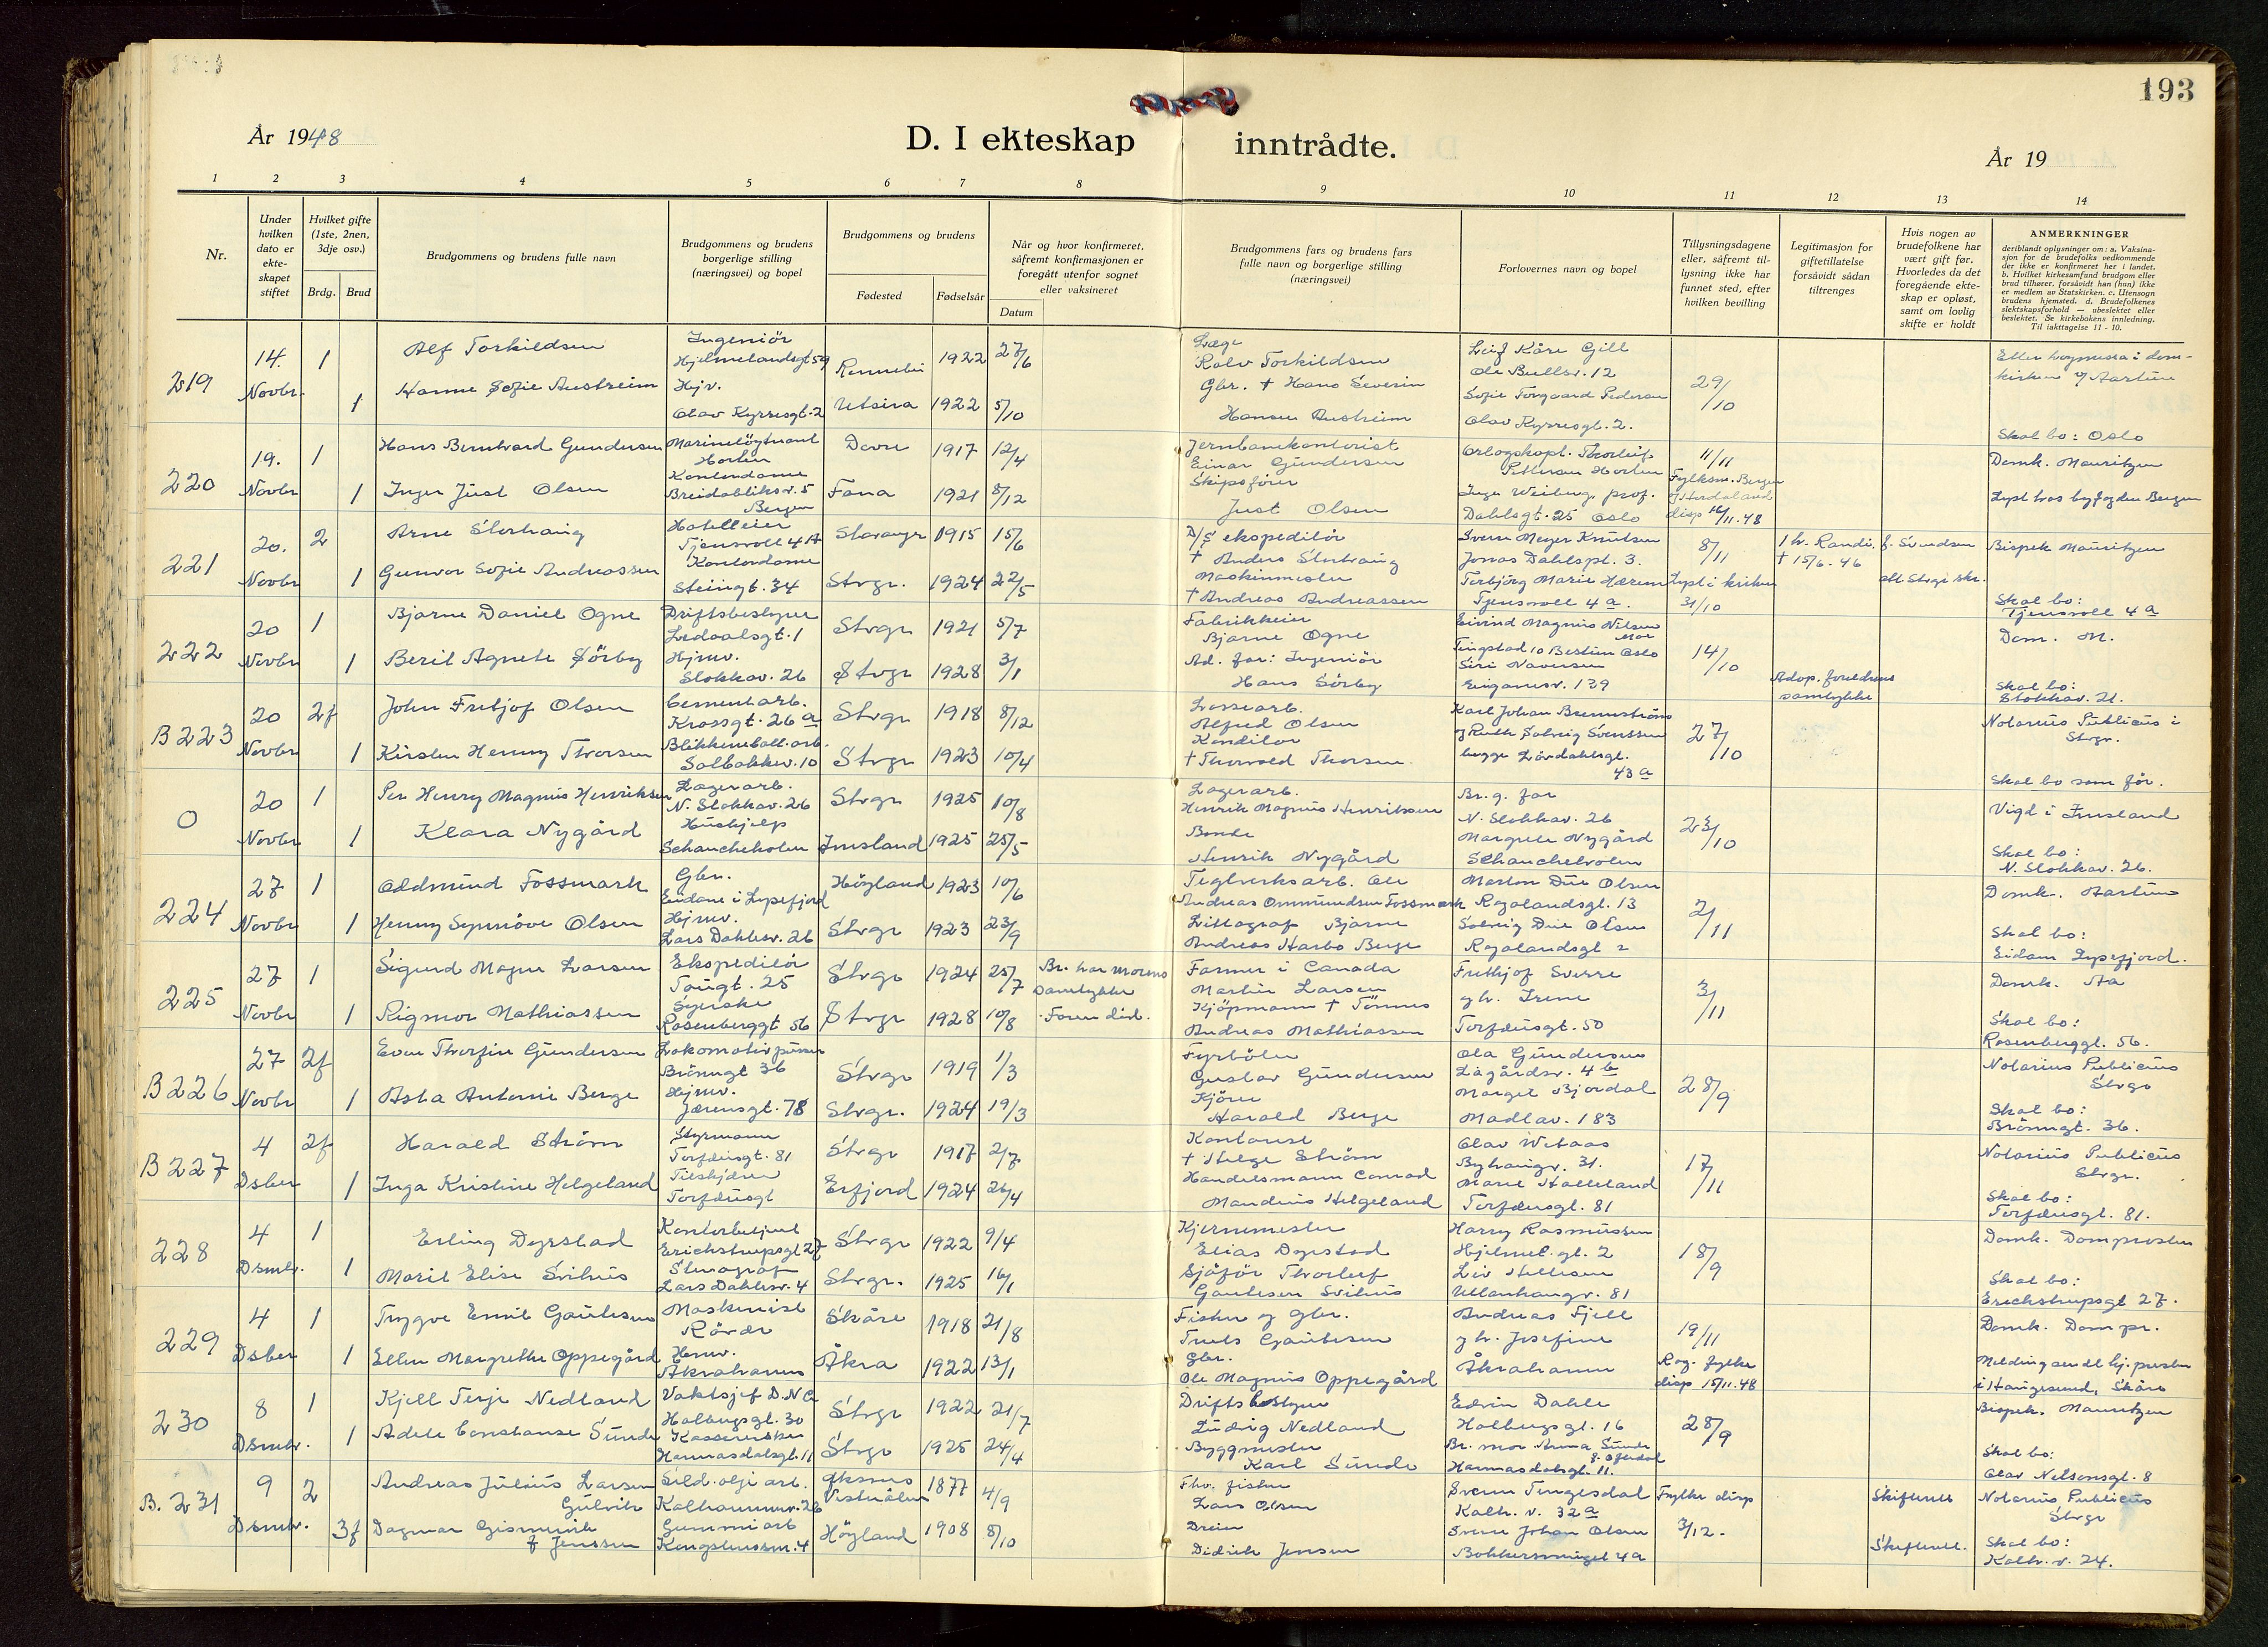 193
År 1948
D. I ekteskap inntrådte.
År 19
1 2 3 4 5 6 7 8 9 10 11 12 13 14
Nr.
Under hvilken dato er ekteskapet stiftet
Hvilket gifte (1ste, 2nen, 3dje osv.)
Brdg. Brud
Brudgommens og brudens fulle navn
Brudgommens og brudens borgerlige stilling (næringsvei) og bopel
Brudgommens og brudens
Fødested
Fødselsår
Når og hvor konfirmeret, såfremt konfirmasjonen er foregått utenfor sognet eller vaksineret
Datum
Brudgommens fars og brudens fars fulle navn og borgerlige stilling (næringsvei)
Forlovernes navn og bopel
Tillysningsdagene eller, såfremt tillysning ikke har funnet sted, efter hvilken bevilling
Legitimasjon for giftetillatelse forsåvidt sådan tiltrenges
Hvis nogen av brudefolkene har vært gift før. Hvorledes da det foregående ekteskap er opløst, samt om lovlig skifte er holdt
ANMERKNINGER
deriblandt oplysninger om: a. Vaksinasjon for de brudefolks vedkommende der ikke er konfirmeret her i landet. b. Hvilket kirkesamfund brudgom eller brud tilhører, forsåvidt han (hun) ikke er medlem av Statskirken. c. Utensogn brudens hjemsted. d. Brudefolkenes slektskapsforhold — ubeslektet eller beslektet. Se kirkebokens innledning. Til iakttagelse 11 - 10.
219 14. Novbr. 1 Alf Torkildsen Ingeniör Hjelmelandsgt 59 1922 27/6 Læge Rolv Torkildsen Leif Kåre Gill Ole Bullsv. 12 29/10
1 Hanne Sofie Austreim Hjv. Olav Kyrresgt. 2 Utsira 1922 5/10 Gbr. † Hans Severin Hansen Austreim Olav Kyrresgt. 2. Skal bo: Oslo
220 19. Novbr 1 Hans Bernhard Gundersen Marinelöytnant Horten 1917 12/4 Jernbanekontorist Einar Gundersen 11/11 Domk. Mauritzen
1 Inger Just Olsen Kontordame Breidabliksv. 5 Bergen Fana 1921 8/12 Skipsförer Just Olsen Dahlsgt. 25 Oslo disp 16/11.48
221 20. Novbr 2 Arne Storhaug Hotelleier Tjensvoll 4A Stavanger 1915 15/6 D/S ekspeditör Sverre Meyer Knutsen Jonas Dahlspl. 3. 8/11 † 15/6. 46 Bispek. Mauritzen
1 Gunvor Sofie Andreassen Kontordame Steingt. 34 Stvgr. 1924 22/5 Maskinmester † Andreas Andreassen Tjensvoll 4a. Lyst i kirken 31/10 Skal bo: Tjensvoll 4a
222 20 Novbr 1 Bjarne Daniel Ogne Driftsbestyrer Ledaalsgt. 1 Stvgr 1921 5/7 Fabrikkeier Bjarne Ogne Eivind Magnus Nilsen 14/10 Dom. M.
1 Beril Agnete Sörby Hjmv. Stokkav. 26 Stvgr 1928 3/1 Ad. far: Ingeniör Hans Sörby Eiganesv. 139 Adop. foreldrens samtykke Skal bo: Stokkav. 21.
B 223 20 Novbr 2f John Fritjof Olsen Cementarb. Krossgt. 26a Stvgr 1918 8/12 Lossearb. Alfred Olsen Karl Johan Brennströms 27/10 Notarius Publicus i Stvgr.
1 Kirsten Henny Thorsen Solbakkev. 10 Stvgr 1923 10/4 Konditor † Thorvald Thorsen begge Lövdahlsgt. 43a Skal bo som för.
0 20 Novbr 1 Per Henry Magnus Henriksen Lagerarb. N. Stokkav. 26 Stvgr 1925 10/8 Lagerarb. Henrik Magnus Henriksen Br. g. far N. Stokkav. 26 23/10 Vigd i Imsland
1 Klara Nygård Hushjelp Schancheholen Imsland 1925 25/5 Bonde Henrik Nygård Margrete Nygård Schancheholen Skal bo: N. Stokkav. 26.
224 27 Novbr 1 Oddmund Fossmark Gbr. Eidane i Lysefjord Högland 1923 10/6 Teglverksarb. Ole Andreas Ommundsen Fossmark Morten Due Olsen Rogalandsgt. 13 2/11 Domk. Aartun
1 Henny Synnöve Olsen Hjmv. Lars Dahlesv. 26 Stvgr 1923 23/9 Littograf Bjarne Andreas Harbo Berge Solveig Due Olsen Rogalandsgt 2 Skal bo: Eidane Lysefjord.
225 27 Novbr 1 Sigurd Magne Larsen Ekspeditör Tougt. 25 Stvgr 1924 25/7 Br. har morens samtykke Farmer i Canada Martin Larsen Frithjof Sverre 3/11 Domk. Aa
1 Rigmor Mathiassen Syerske Rosenberggt 56 Stvgr 1928 10/8 Faren död. Kjöpmann † Tönnes Andreas Mathiassen g h. Irene Torfæusgt. 50 Skal bo: Rosenberggt. 56.
B 226 27 Novbr 2f Even Thorfin Gundersen Lokomotivpusser Brönngt 36 Stvgr 1919 1/3 Fyrböter Gustav Gundersen Ola Gundersen Lagårdsv. 4b 28/9 Notarius Publicus Stvgr
1 Asta Antonie Berge Hjmv. Jærensgt. 78 Stvgr. 1924 19/3 Kjörer Harald Berge Margit Bjordal Madlav. 183 Skal bo: Brönngt. 36.
B 227 4 Dsber 2f Harald Ström Styrmann Torfæusgt. 81 Stvgr 1917 2/7 Kontorist † Helge Ström Olav Wetaas Byhaugv. 31. 17/11 Notarius Publicus Stvgr.
1 Inga Kristine Helgeland Torfæusgt Erfjord 1924 26/4 Handelsmann Conrad Maudius Helgeland Marie Halleland Torfæusgt. 81 Skal bo: Torfæusgt. 81.
228 4 Dsmbr. 1 Erling Dyrstad Kontorbetjent Erichstrupsgt 27 Stvgr 1922 9/4 Kjernemester Elias Dyrstad Harry Rasmussen Hjelmel. gt. 2 18/9 Domk. Domprosten
1 Marit Elise Svihus Stenograf Lars Dahlesv. 4 Stvgr. 1925 16/1 Sjåför Thorleif Gautesen Svihus Liv Hellesen Ullenhaugv. 81 Skal bo: Erichstrupsgt 27.
229 4 Dsber 1 Trygve Emil Gautesen Maskinist Rövær Skåre 1918 21/8 Fisker og gbr. Truls Gautesen Andreas Fjell g h. Josefine 19/11 Domk. Dompr.
1 Ellen Margrethe Oppegård Hmv. Åkrahamn Åkra 1922 13/1 Gbr. Ole Magnus Oppegård Åkrahamn Rog. fylke disp 15/11.48 Melding sendt hj. presten i Haugesund, Skåre
230 8 Dsmbr. 1 Kjell Terje Nedland Vaktsjef D.N.C Holbergsgt. 30 Stvgr 1922 21/7 Driftsbestyrer Ludvig Nedland Edvin Dahle Holbergsgt. 16 28/9 Bispek. Mauritzen
1 Adele Constanse Sunde Kassererske Hannasdalsgt. 11 Stvgr 1925 24/4 Byggmester Karl Sunde Br. mor Anna Sunde Hannasdalsgt. 11. Skal bo: Olav Nilsonsgt. 8
B. 231 9 Dsmbr. 2 Andreas Julius Larsen Gulvik Sild. olje arb. Kalhammerv. 26 1877 4/9 Fhv. fisker Lars Olsen Svenn Tengesdal Kalh. v. 32a Fylke disp 3/12. Skifterett Notarius Publicus Stvgr
3f Dagmar Gismervik f Jenssen Gummiarb Kongsteinssm. 4 Högland 1908 8/10 Dreier Didrik Jensen Svenn Johan Olsen Bokkersmuget 4a Skifterett. Skal bo: Kalh. v. 24.